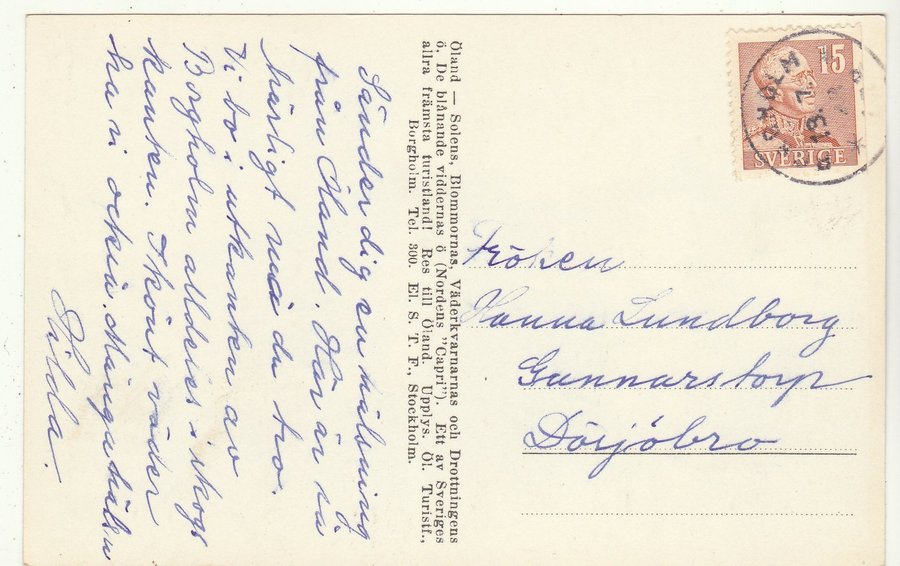 Sänder dig en hälsning
från Öland. Här är så
härligt må du tro.
Vi bo i utkanten av
Borgholm alldeles i skogs
kanten. Skönt väder
ha vi också. Många häls
Hilda.
Öland — Solens, Blommornas, Väderkvarnarnas och Drottningens
ö. De blånande viddernas ö (Nordens "Capri"). Ett av Sveriges
allra främsta turistland! Res till Öland. Upplys. Öl. Turistf.,
Borgholm. Tel. 300. El. S. T. F., Stockholm.
15
SVERIGE
Fröken
Hanna Lundborg
Gunnarstorp
Dösjöbro